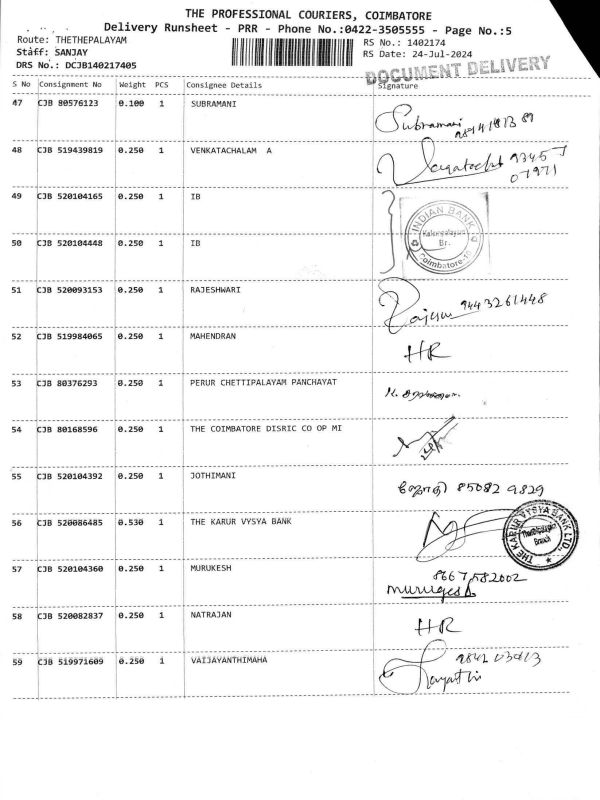 THE PROFESSIONAL COURIERS, COIMBATORE
Delivery Runsheet - PRR - Phone No.:0422-3505555 - Page No.:5
Route: THETHEPALAYAM RS No.: 1402174
Staff: SANJAY RS Date: 24-Jul-2024
DRS No.: DCJB140217405
DOCUMENT DELIVERY
S No Consignment No Weight PCS Consignee Details Signature
47 CJB 80576123 0.100 1 SUBRAMANI Subramani
48 CJB 519439819 0.250 1 VENKATACHALAM A
49 CJB 520104165 0.250 1 IB
INDIAN BANK
Kalampalayam
Br.
Coimbatore-10
50 CJB 520104448 0.250 1 IB
51 CJB 520093153 0.250 1 RAJESHWARI 9443261448
52 CJB 519984065 0.250 1 MAHENDRAN HR
53 CJB 80376293 0.250 1 PERUR CHETTIPALAYAM PANCHAYAT
54 CJB 80168596 0.250 1 THE COIMBATORE DISRIC CO OP MI
55 CJB 520104392 0.250 1 JOTHIMANI ஜோதி 85082 9829
56 CJB 520086485 0.530 1 THE KARUR VYSYA BANK
THE KARUR VYSYA BANK LTD.
Thethipalayam
Branch
57 CJB 520104360 0.250 1 MURUKESH 8667582002
Murugesh
58 CJB 520082837 0.250 1 NATRAJAN HR
59 CJB 519971609 0.250 1 VAIJAYANTHIMAHA